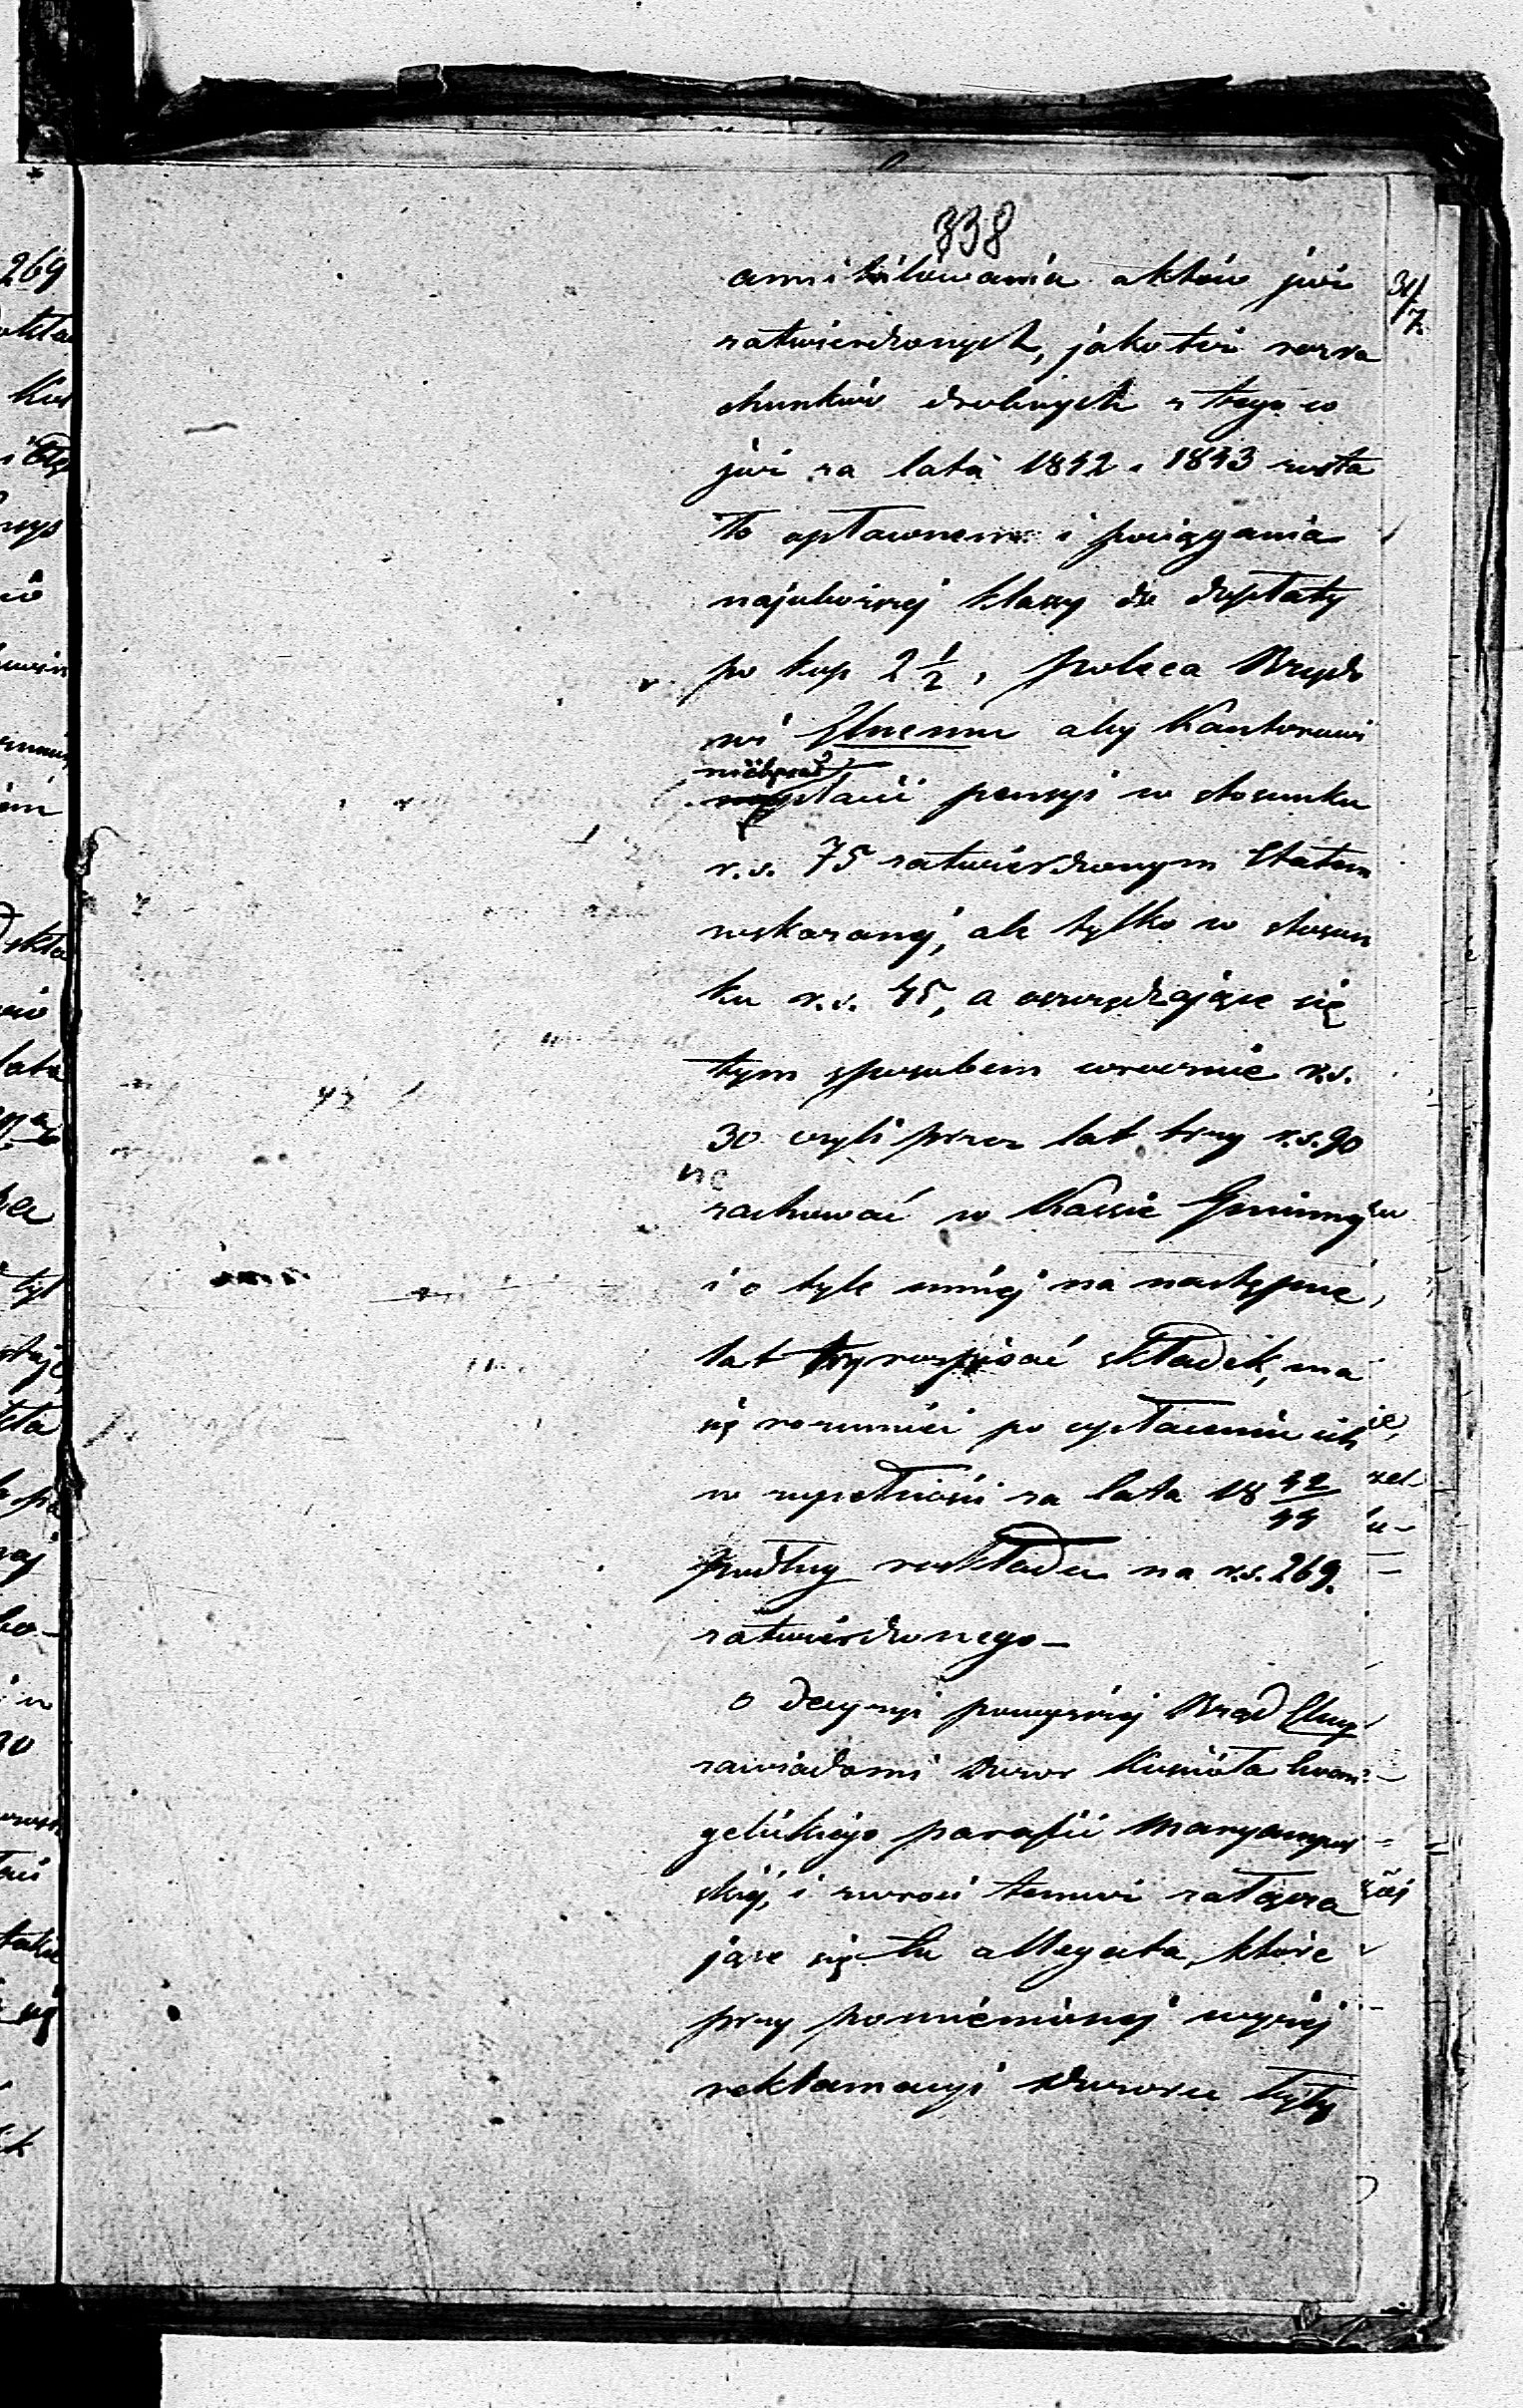 338
annihilowania aktów już
zatwierdzonych, jakoteż rozra
chunków drobnych z tego co
już za lata 1842 i 1843 zosta
ło opłaconem i pociągania
najuboższej klassy do dopłaty
po kop 2 1/2, poleca Rządo
wi Głnemu aby Kantorowi
płacić pensyi w stosunku
r.s. 75 zatwierdzonym Etatem
wskazanej, ale tylko w stosun
ku r.s. 45, a oszczędzające się
tym sposobem corocznie r.s.
30 czyli przez lat trzy r.s. 90
zachować w Kassie Gminnej
i o tyle mniéj na następne
lat trzy rozpisać składek, ma
się rozumieć po opłaceniu ich
w zupełności za lata 18 42/44
podług rozkładu na r.s. 269.
zatwierdzonego —
O decyzyi powyższej Rząd
zawiadomi Dozór Kościoła Ewan
gelickiego parafii Maryampol
skiéj, i zwróci temuż załącza
jące się tu allegata, które
przy pomienionej wyżej
reklamacyi Dozoru